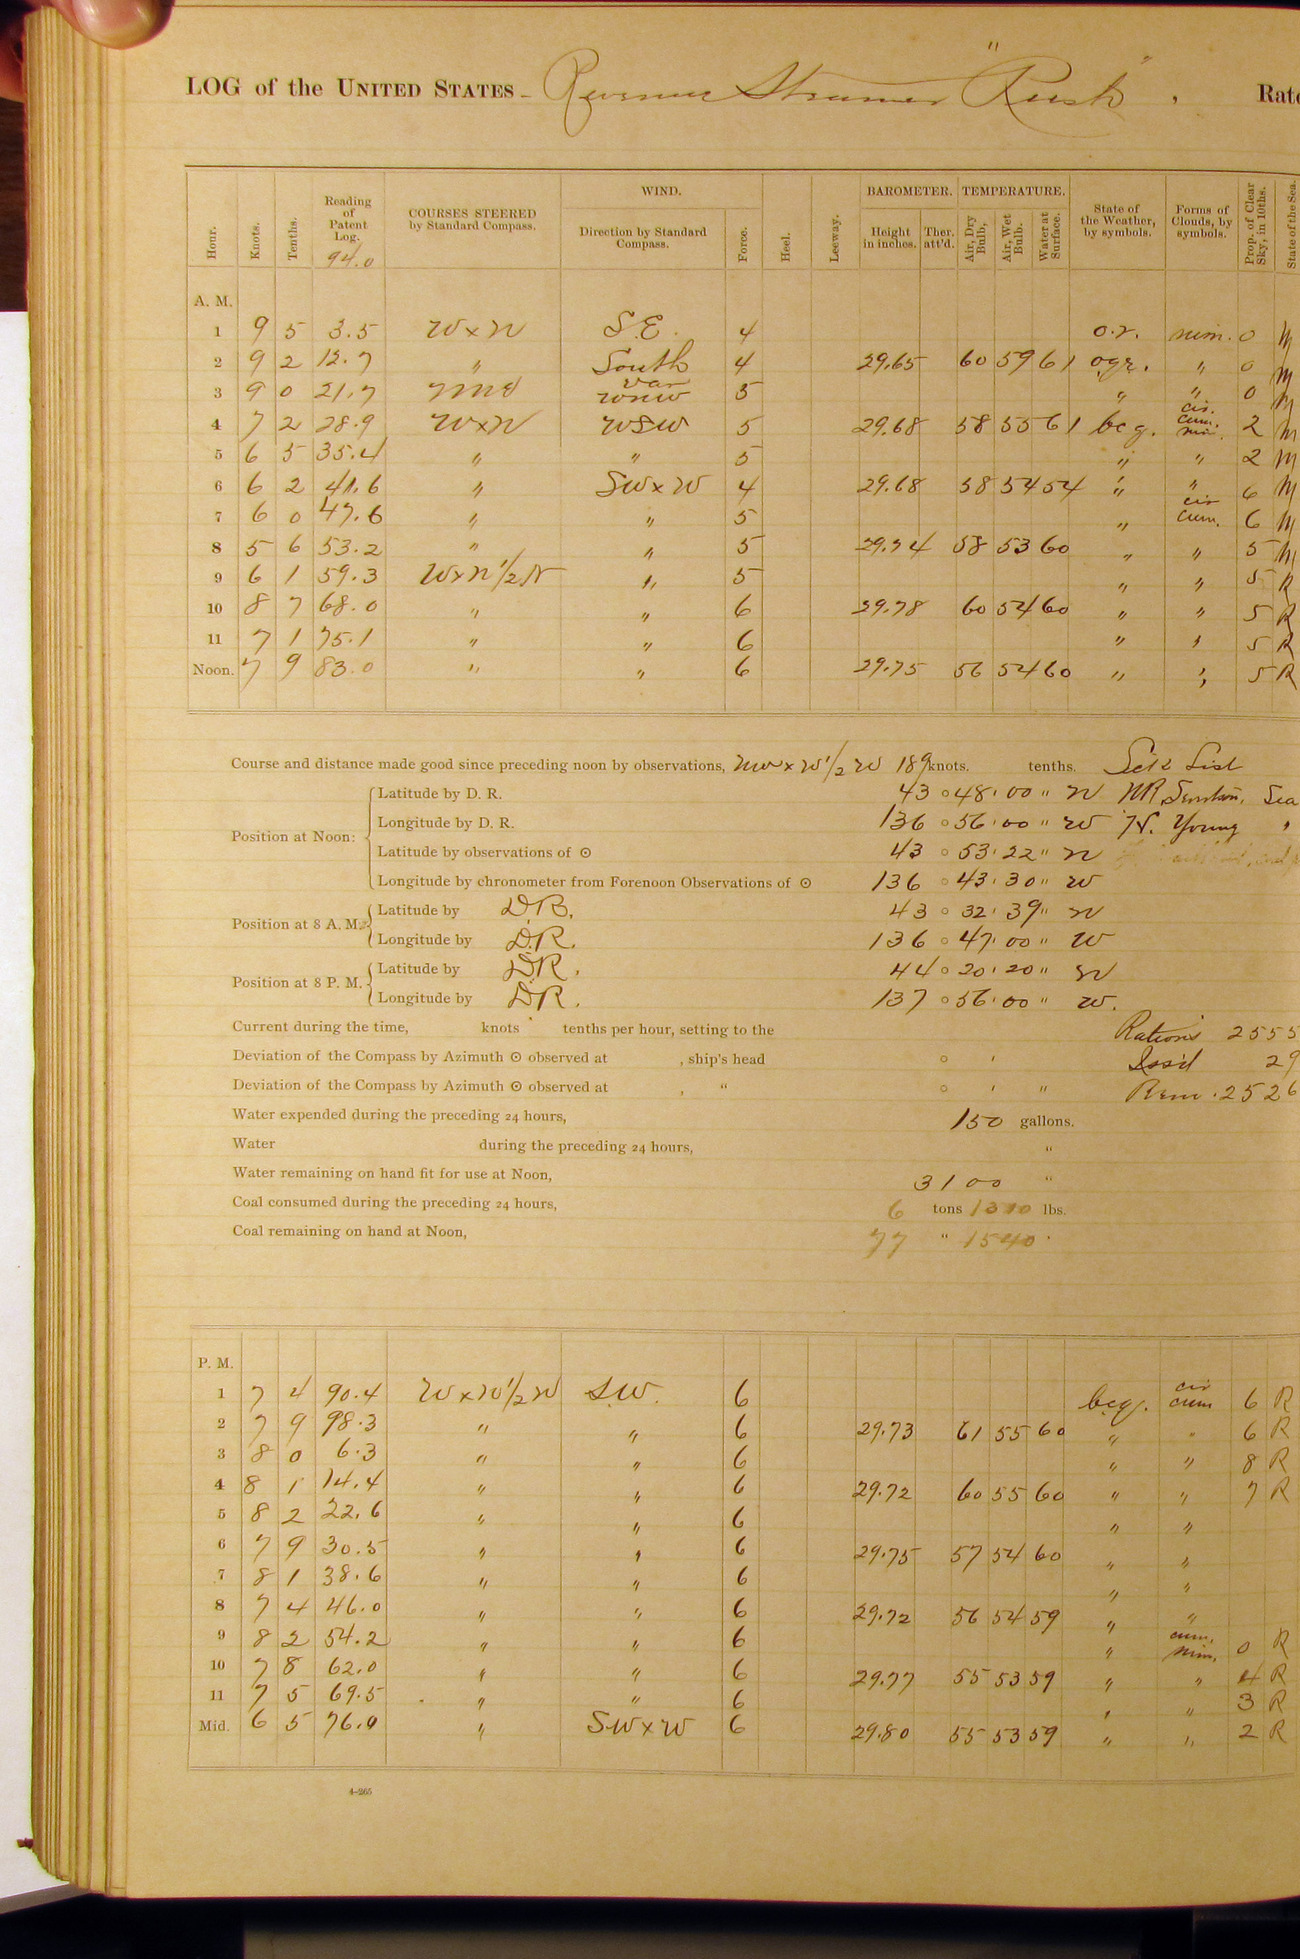 LOG of the UNITED STATES Revenue Steamer "Rush", Rate
Hour. Knots. Tenths. Reading of Patent Log. COURSES STEERED by Standard Compass. WIND. Direction by Standard Compass. Force. Heel. Leeway. BAROMETER. Height in inches. Ther. att'd. TEMPERATURE. Air, Dry Bulb, Air, Wet Bulb. Water at Surface. State of the Weather, by symbols. Forms of Clouds, by symbols. Prop. of Clear Sky, in 10ths. State of the Sea.
94.0
A. M.
1 9 5 3.5 W x N S.E. 4 o.r. nim. 0 M
2 9 2 12.7 " South 4 29.65 60 59 61 oqr. " 0 M
3 9 0 21.7 var WNW 5 " " 0 M
4 7 2 28.9 W x N WSW 5 29.68 58 55 61 bcq. cir. cum. nim. 2 M
5 6 5 35.4 " " 5 " " 2 M
6 6 2 41.6 " SW x W 4 29.68 58 54 54 " " 6 M
7 6 0 47.6 " " 5 " cir cum. 6 M
8 5 6 53.2 " " 5 29.74 58 53 60 " " 5 M
9 6 1 59.3 W x N 1/2 N " 5 " " 5 R
10 8 7 68.0 " " 6 29.78 60 54 60 " " 5 R
11 7 1 75.1 " " 6 " " 5 R
Noon. 7 9 83.0 " " 6 29.75 56 54 60 " " 5 R
Course and distance made good since preceding noon by observations, NW x W 1/2 W 189 knots. tenths. Sick List
Position at Noon: Latitude by D. R. 43 ° 48 ' 00 " N
Longitude by D. R. 136 ° 56 ' 00 " W N. Young "
Latitude by observations of ☉ 43 ° 53 ' 22 " N
Longitude by chronometer from Forenoon Observations of ☉ 136 ° 43 ' 30 " W
Position at 8 A. M. Latitude by D.R. 43 ° 32 ' 39 " N
Longitude by D.R. 136 ° 47 ' 00 " W
Position at 8 P. M. Latitude by D.R. 44 ° 20 ' 20 " N
Longitude by D.R. 137 ° 56 ' 00 " W.
Current during the time, knots tenths per hour, setting to the Rations 2555
Deviation of the Compass by Azimuth ☉ observed at , ship's head ° ' Iss'd 29
Deviation of the Compass by Azimuth ☉ observed at , " ° ' " Rem. 2526
Water expended during the preceding 24 hours, 150 gallons.
Water during the preceding 24 hours, "
Water remaining on hand fit for use at Noon, 3100 "
Coal consumed during the preceding 24 hours, 6 tons 1310 lbs.
Coal remaining on hand at Noon, 77 " 1540
P. M.
1 7 4 90.4 W x N 1/2 N S.W. 6 bcq. cir cum 6 R
2 7 9 98.3 " " 6 29.73 61 55 60 " " 6 R
3 8 0 6.3 " " 6 " " 8 R
4 8 1 14.4 " " 6 29.72 60 55 60 " " 7 R
5 8 2 22.6 " " 6 " "
6 7 9 30.5 " " 6 29.75 57 54 60 " "
7 8 1 38.6 " " 6 " "
8 7 4 46.0 " " 6 29.72 56 54 59 " "
9 8 2 54.2 " " 6 " cum. nim. 0 R
10 7 8 62.0 " " 6 29.77 55 53 59 " " 4 R
11 7 5 69.5 " " 6 " " 3 R
Mid. 6 5 76.0 " SW x W 6 29.80 55 53 59 " " 2 R
4-265